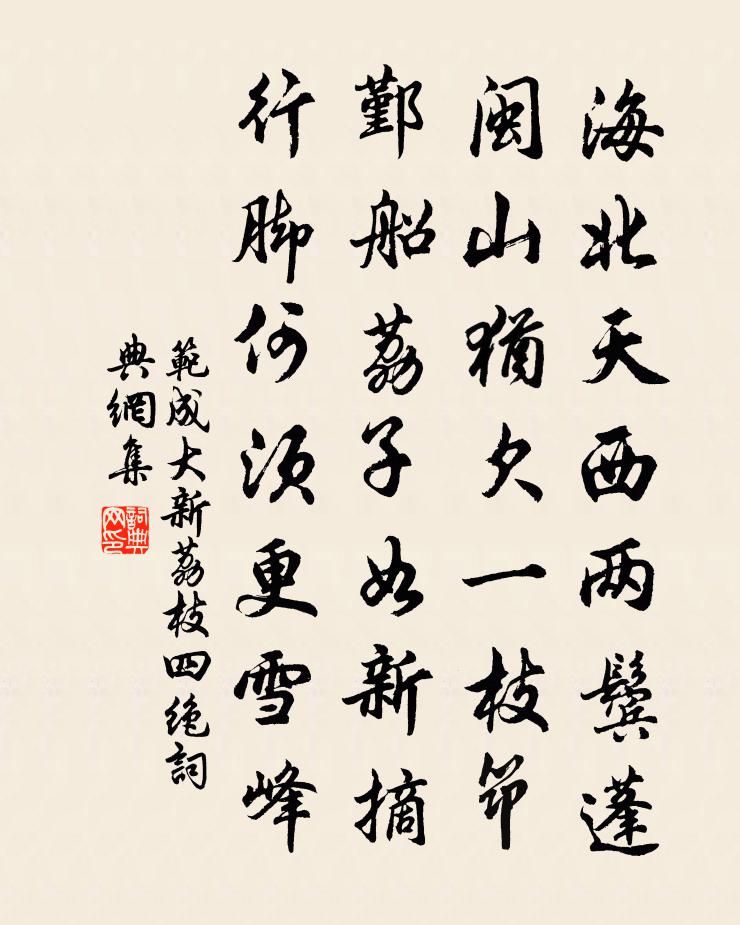 海北天西两鬓蓬
闽山犹欠一枝筇
鄞船荔子如新摘
行脚何须更雪峰
範成大新荔枝四绝詞
典網集
詞典网印